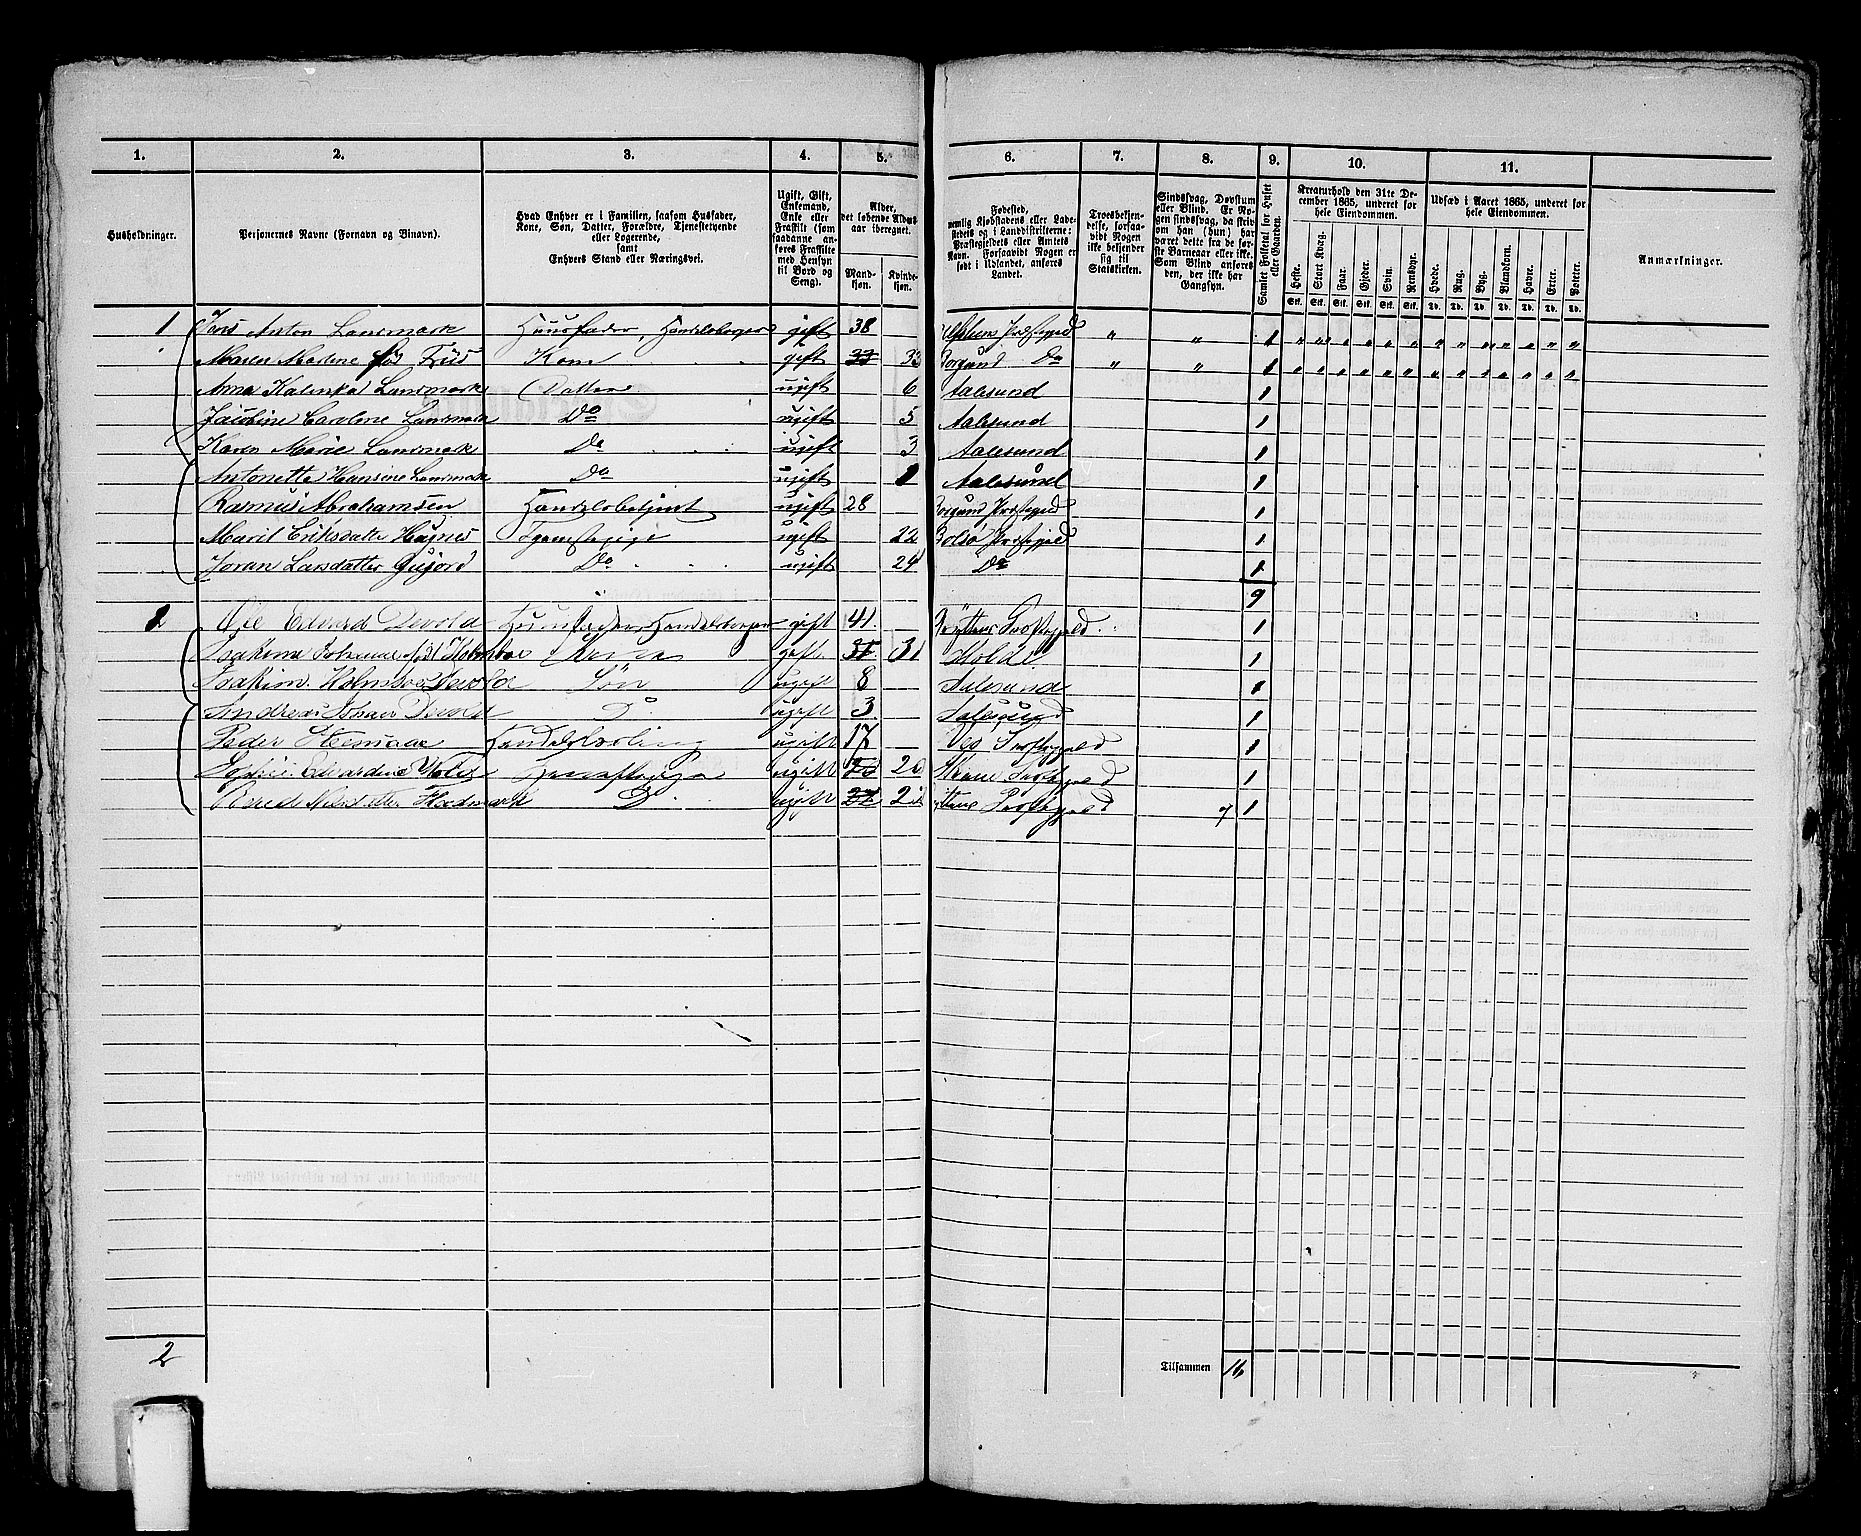 1. 2. 3. 4. 5. 6. 7. 8. 9. 10. 11.
Husholdninger.
Personernes Navne (Fornavn og Binavn).
Hvad Enhver er i Familien, saasom Husfader,
Kone, Søn, Datter, Forældre, Tjenestetyende
eller Logerende,
samt
Enhvers Stand eller Næringsvei.
Ugift, Gift,
Enkemand,
Enke eller
Fraskilt (som
saadanne an-
føres Fraskilte
med Hensyn
til Bord og
Seng).
Alder,
det løbende Alders-
aar iberegnet.
Mand-
kjøn.
Kvinde-
kjøn.
Fødested,
nemlig Kjøbstadens eller Lade-
stedets og i Landdistrikterne:
Præstegjeldets eller Amtets
Navn. Forsaavidt Nogen er
født i Udlandet, anføres
Landet.
Troesbekjen-
delse, forsaa-
vidt Nogen
ikke bekjender
sig til
Statskirken.
Sindssvag, Døvstum
eller Blind. Er No-
gen sindssvag, da skriv-
es om han (hun) har
været dette fra de før-
ste Barneaar eller ikke.
Som Blind anføres
den, der ikke har
Gangsyn.
Samlet Folketal for Huset
eller Gaarden.
Kreaturhold den 31te De-
cember 1865, underet for
hele Eiendommen.
Heste. Stort Kvæg. Faar. Gjeder. Svin. Rensdyr.
Stk. Stk. Stk. Stk. Stk. Stk.
Udsæd i Aaret 1865, underet for
hele Eiendommen.
Hvede. Rug. Byg. Blandkorn. Havre. Erter. Poteter.
Td. Td. Td. Td. Td. Td. Td.
Anmærkninger.
1 Jens Anton Landmark Huusfader, Handelsborger gift 38 Præstegjeld " " 1 " " " " " " " " " " " " "
Maren Madene Friis Kone gift 33 33 Borgund Do " " 1 " " " " " " " " " " " " "
Anna Landmark Datter ugift 6 Aalesund 1
Jacobine Caroline Landmark Do ugift 5 Aalesund 1
Karen Marie Landmark Do ugift 3 Aalesund 1
Antonette Hansine Landmark Do ugift 1 Aalesund 1
Rasmus Abrahamsen Handelsbetjent ugift 28 Borgund Præstegjeld 1
Marit Eriksdatter Tjenestepige ugift 22 Bolsø Præstegjeld 1
Joran Larsdatter Do ugift 24 Do 1
9
2 Ole Edvard Devold Huusfader Handelsborger gift 41 Præstegjeld 1
Johanne født Holmboe Kone gift 31 31 Molde 1
Joakim Holmboe Devold Søn ugift 8 Aalesund 1
Andreas Devold Do ugift 3 Aalesund 1
Peder ugift 17 Præstegjeld 1
Edvardine ugift 20 Præstegjeld 1
Nilsdatter Do ugift 22 Præstegjeld 7 1
2 Tilsammen 16